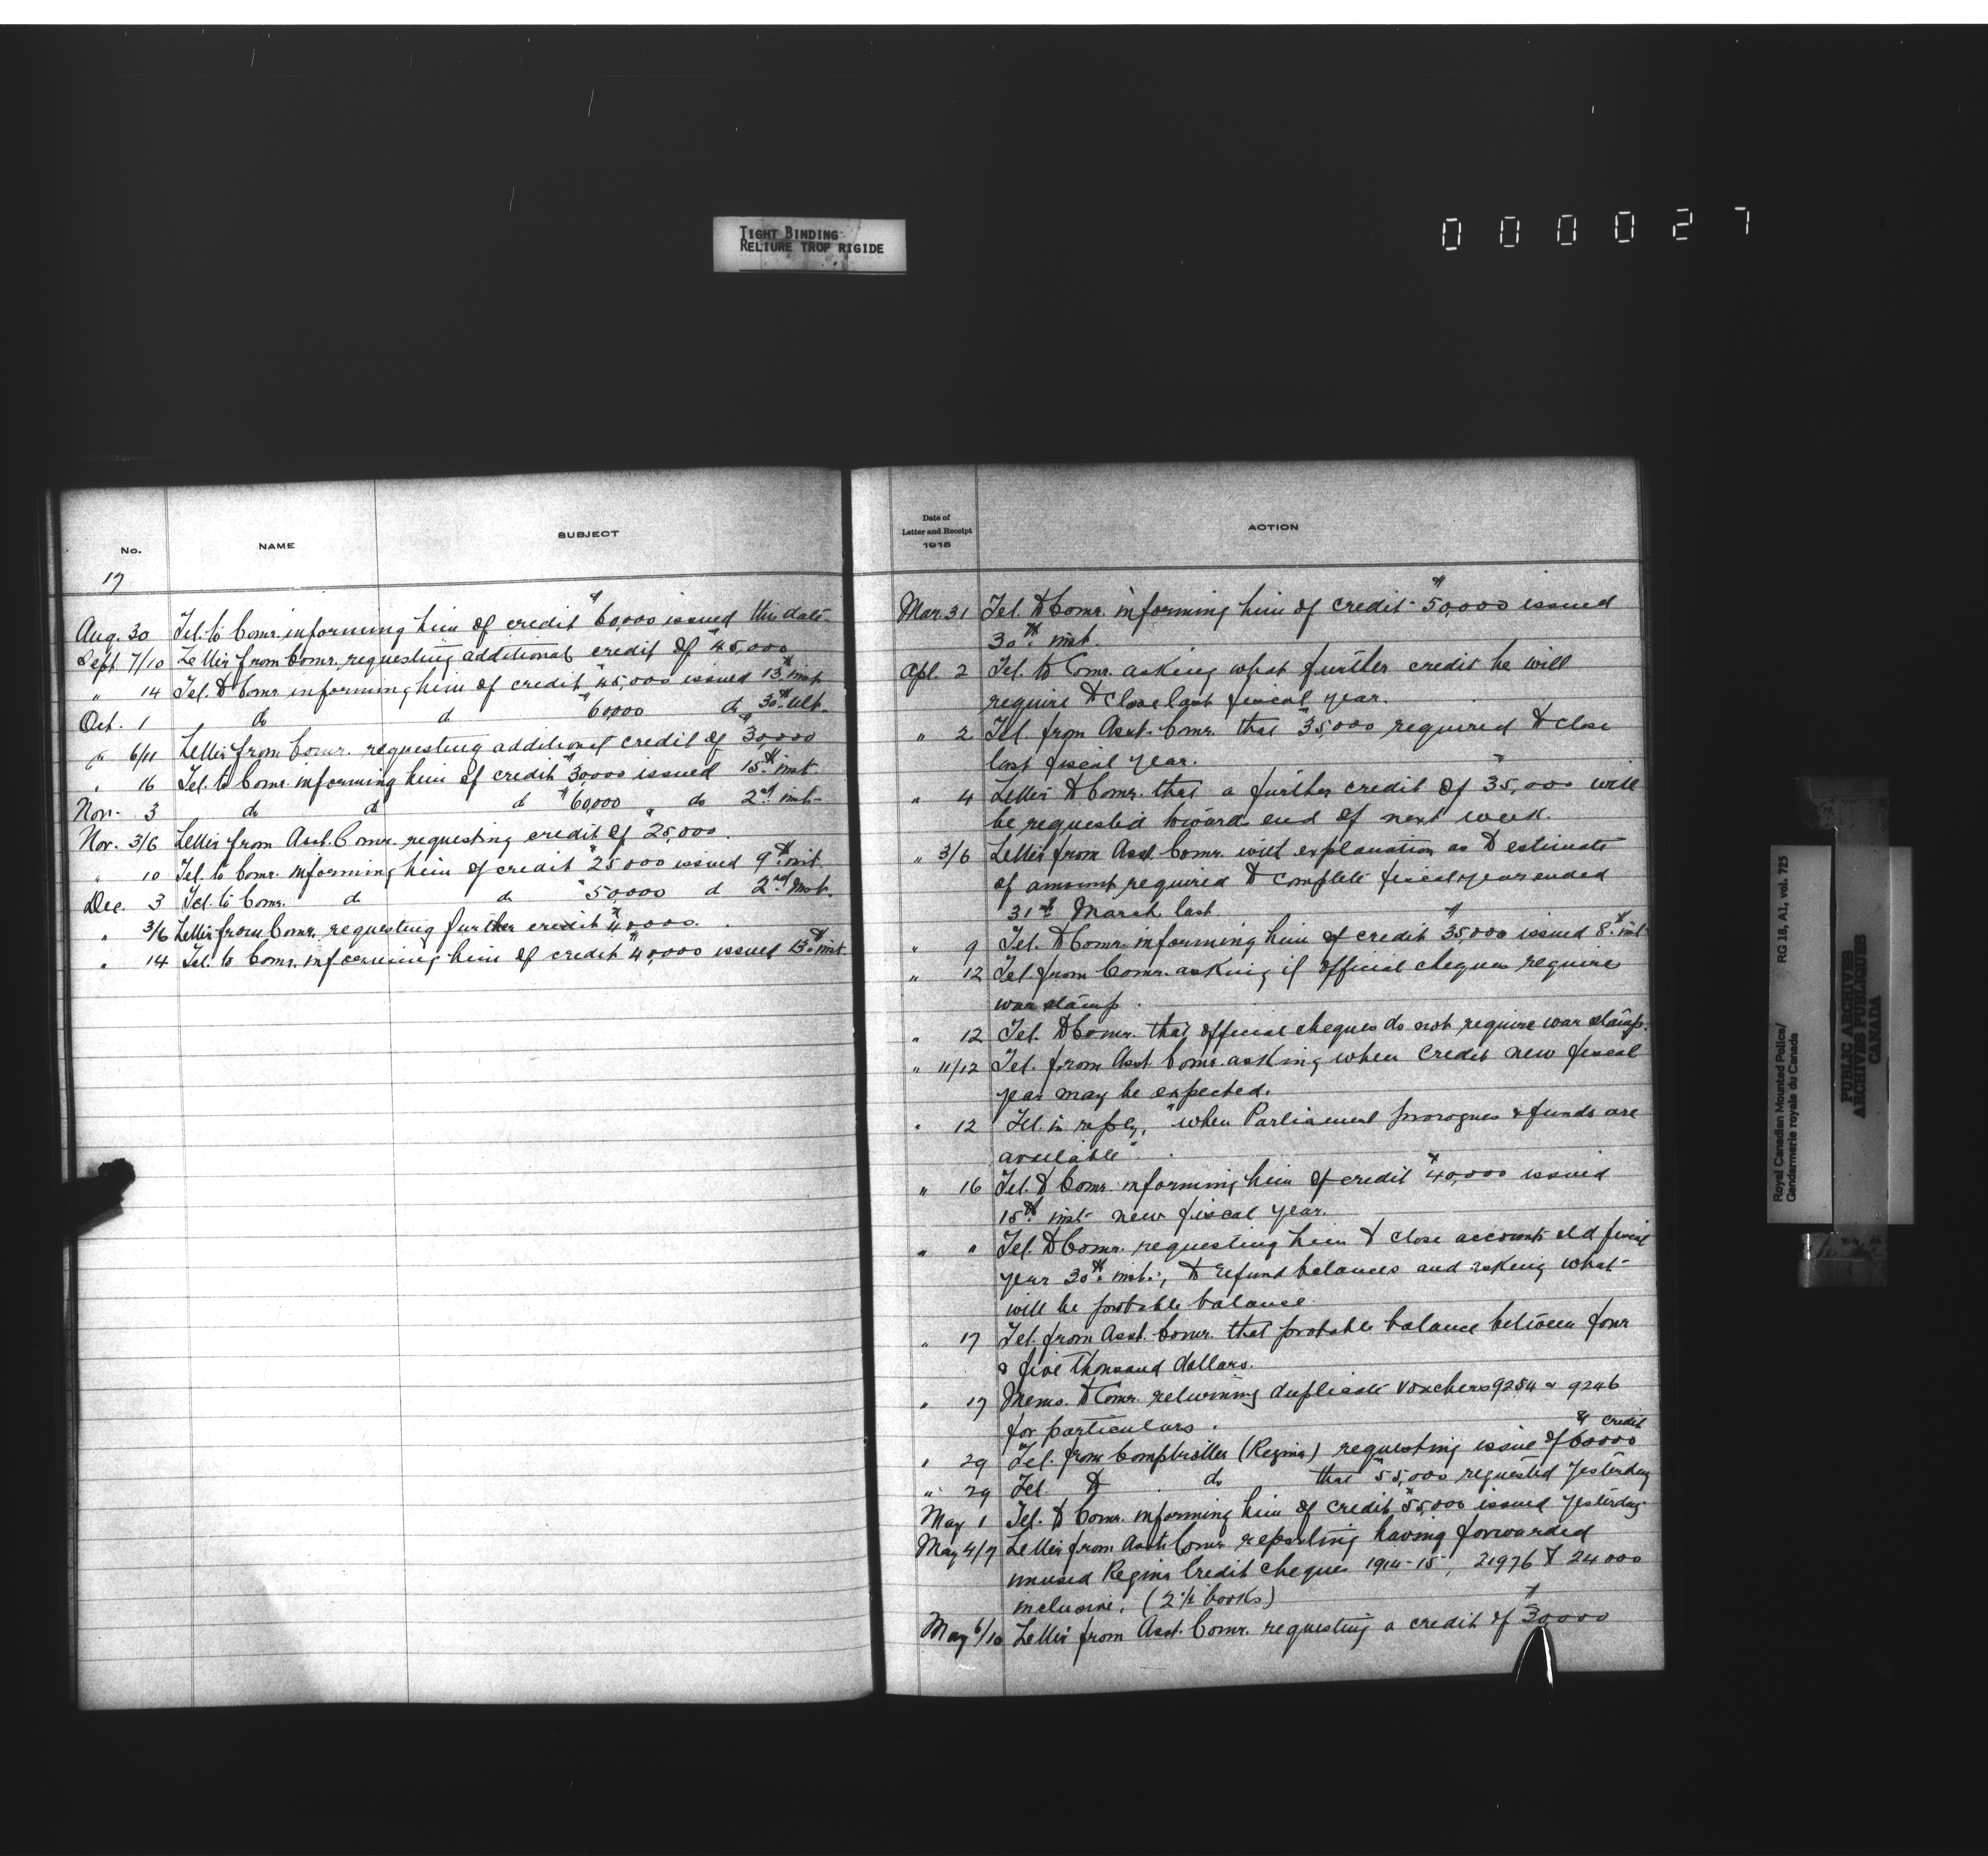 TIGHT BINDING
RELIURE TROP RIGIDE
000027
No.
NAME
SUBJECT
17
Aug. 30 Tel. to Comr. informing him of credit $60,000 issued this date.
Sept. 7/10 Letter from Comr. requesting additional credit of $45,000
" 14 Tel. to Comr informing him of credit $45,000 issued 13th inst
Oct. 1 do do $60,000 do 30th ult.
" 6/11 Letter from Comr. requesting additional credit of $30,000
" 16 Tel. to Comr. informing him of credit $30,000 issued 15th inst.
Nov. 3 do do do $60,000 do 2nd inst.
Nov. 3/6 Letter from Asst. Comr. requesting credit of $25,000.
" 10 Tel. to Comr. informing him of credit $25000 issued 9th inst.
Dec. 3 Tel. to Comr. do do $50,000 do 2nd inst.
" 3/6 Letter from Comr. requesting further credit $40,000.
" 14 Tel. to Comr. informing him of credit $40,000 issued 13th inst.
Date of
Letter and Receipt
1915
ACTION
Mar. 31 Tel. to Comr. informing him of credit $50,000 issued
30th inst.
Apl. 2 Tel. to Comr. asking what further credit he will
require to close last fiscal year.
" 2 Tel. from Asst. Comr. that $35,000 required to close
last fiscal year.
" 4 Letter to Comr. that a further credit of $35,000 will
be requested toward end of next week.
" 3/6 Letter from Asst Comr. with explanation as to estimate
of amount required to complete fiscal year ended
31st March last.
" 9 Tel. to Comr informing him of credit $35,000 issued 8th inst.
" 12 Tel from Comr. asking if official cheques require
war stamp.
" 12 Tel. to Comr. that official cheques do not require war stamp.
" 11/12 Tel. from Asst Comr. asking when credit new fiscal
year may be expected.
" 12 Tel. in reply, "when Parliament prorogues & funds are
available".
" 16 Tel. to Comr. informing him of credit $40,000 issued
15th inst new fiscal year.
" " Tel. to Comr. requesting him to close accounts old fiscal
year 30th inst., to refund balances and asking what
will be probable balance.
" 17 Tel. from Asst. Comr. that probable balance between four
& five thousand dollars.
" 17 Memo. to Comr. returning duplicate vouchers 9254 & 9246
for particulars.
" 29 Tel. from Comptroller (Regina) requesting issue of $60000 credit
" 29 Tel. to do that $55,000 requested yesterday
May 1 Tel. to Comr. informing him of credit $55,000 issued yesterday
May 4/7 Letter from Asst. Comr. reporting having forwarded
unused Regina Credit cheques 1914-15, 21976 to 24000
inclusive. (2 1/2 books)
May 6/10 Letter from Asst. Comr. requesting a credit of $30000
Royal Canadian Mounted Police/
Gendarmerie royale du Canada
RG 18, A1, vol. 725
PUBLIC ARCHIVES
ARCHIVES PUBLIQUES
CANADA